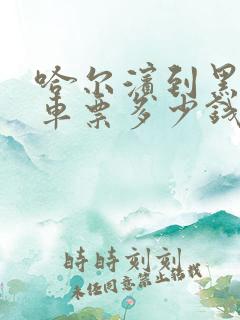 哈尔滨到黑
车票多少钱
時時刻刻
未经同意禁止转载